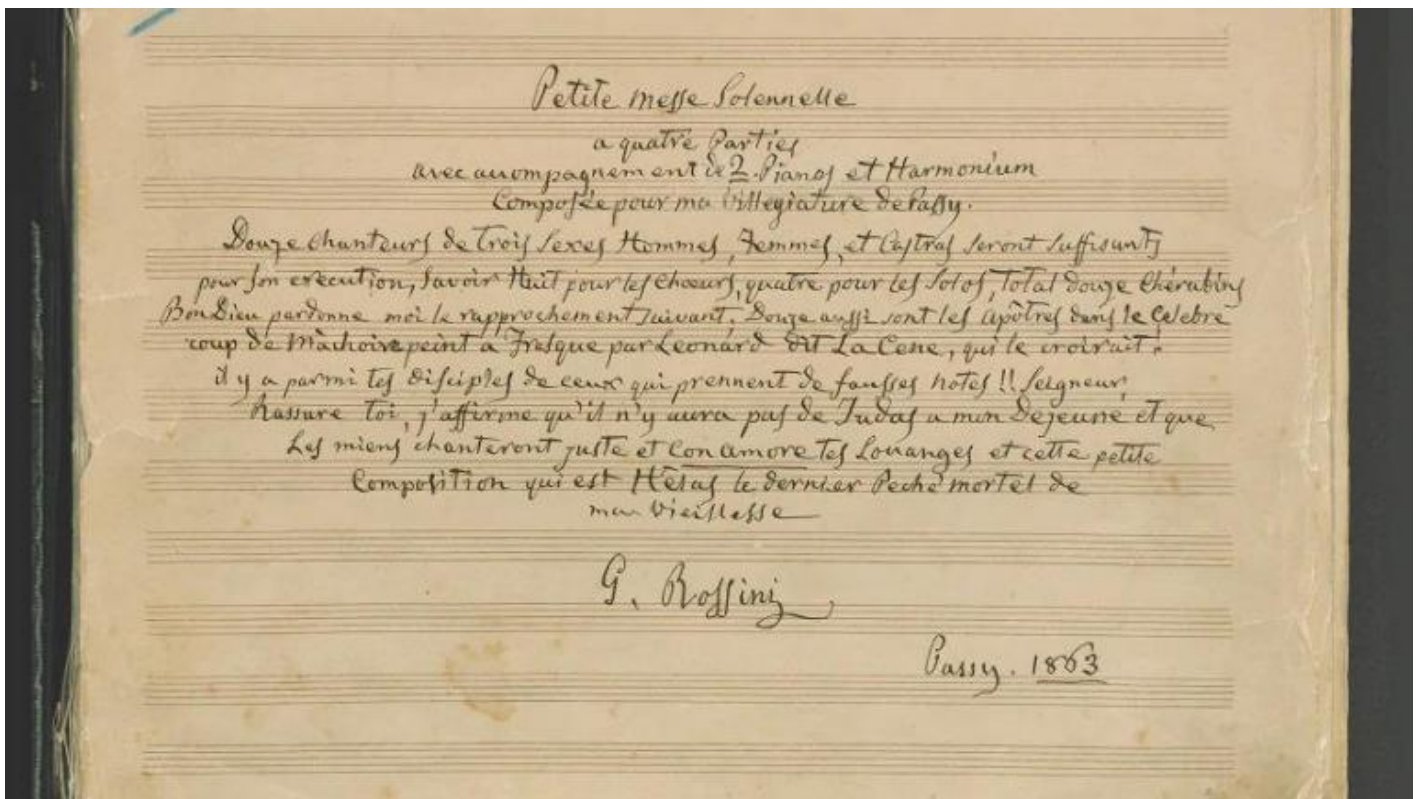 Petite messe Solennelle
a quatre Parties
avec accompagnement de 2 Pianos et Harmonium
Composée pour ma villegiature de Passy.
Douze chanteurs de trois Sexes Hommes, Femmes, et Castras seront suffisants
pour son execution, Savoir Huit pour les Choeurs, quatre pour les Solos, total douze Chérubins
Bon Dieu pardonne moi le rapprochement suivant, Douze aussi sont les Apôtres dans le Celebre
coup de Mâchoire peint a Fresque par Leonard dit La Cene, qui le croirait!
il y a parmi tes disciples de ceux qui prennent de fausses notes!! Seigneur,
Rassure toi, j'affirme qu'il n'y aura pas de Judas a mon Dejeuné et que
Les miens chanteront juste et Con amore tes Louanges et cette petite
Composition qui est Hélas le dernier Peché mortel de
ma vieillesse
G. Rossini
Passy. 1863